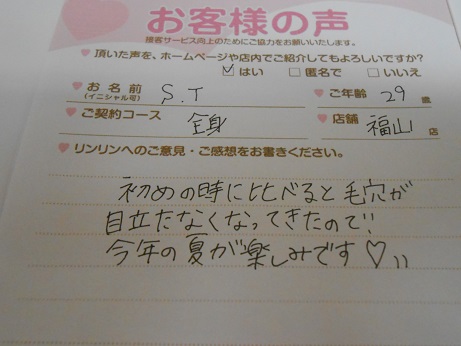 お客様の声
接客サービス向上のためにご協力をお願いいたします。
頂いた声を、ホームページや店内でご紹介してもよろしいですか?
はい 匿名で いいえ
お名前 S.T ご年齢 29 歳
(イニシャル可)
ご契約コース 全身 店舗 福山 店
リンリンへのご意見・ご感想をお書きください。
初めの時に比べると毛穴が
目立たなくなってきたので!!
今年の夏が楽しみです♡